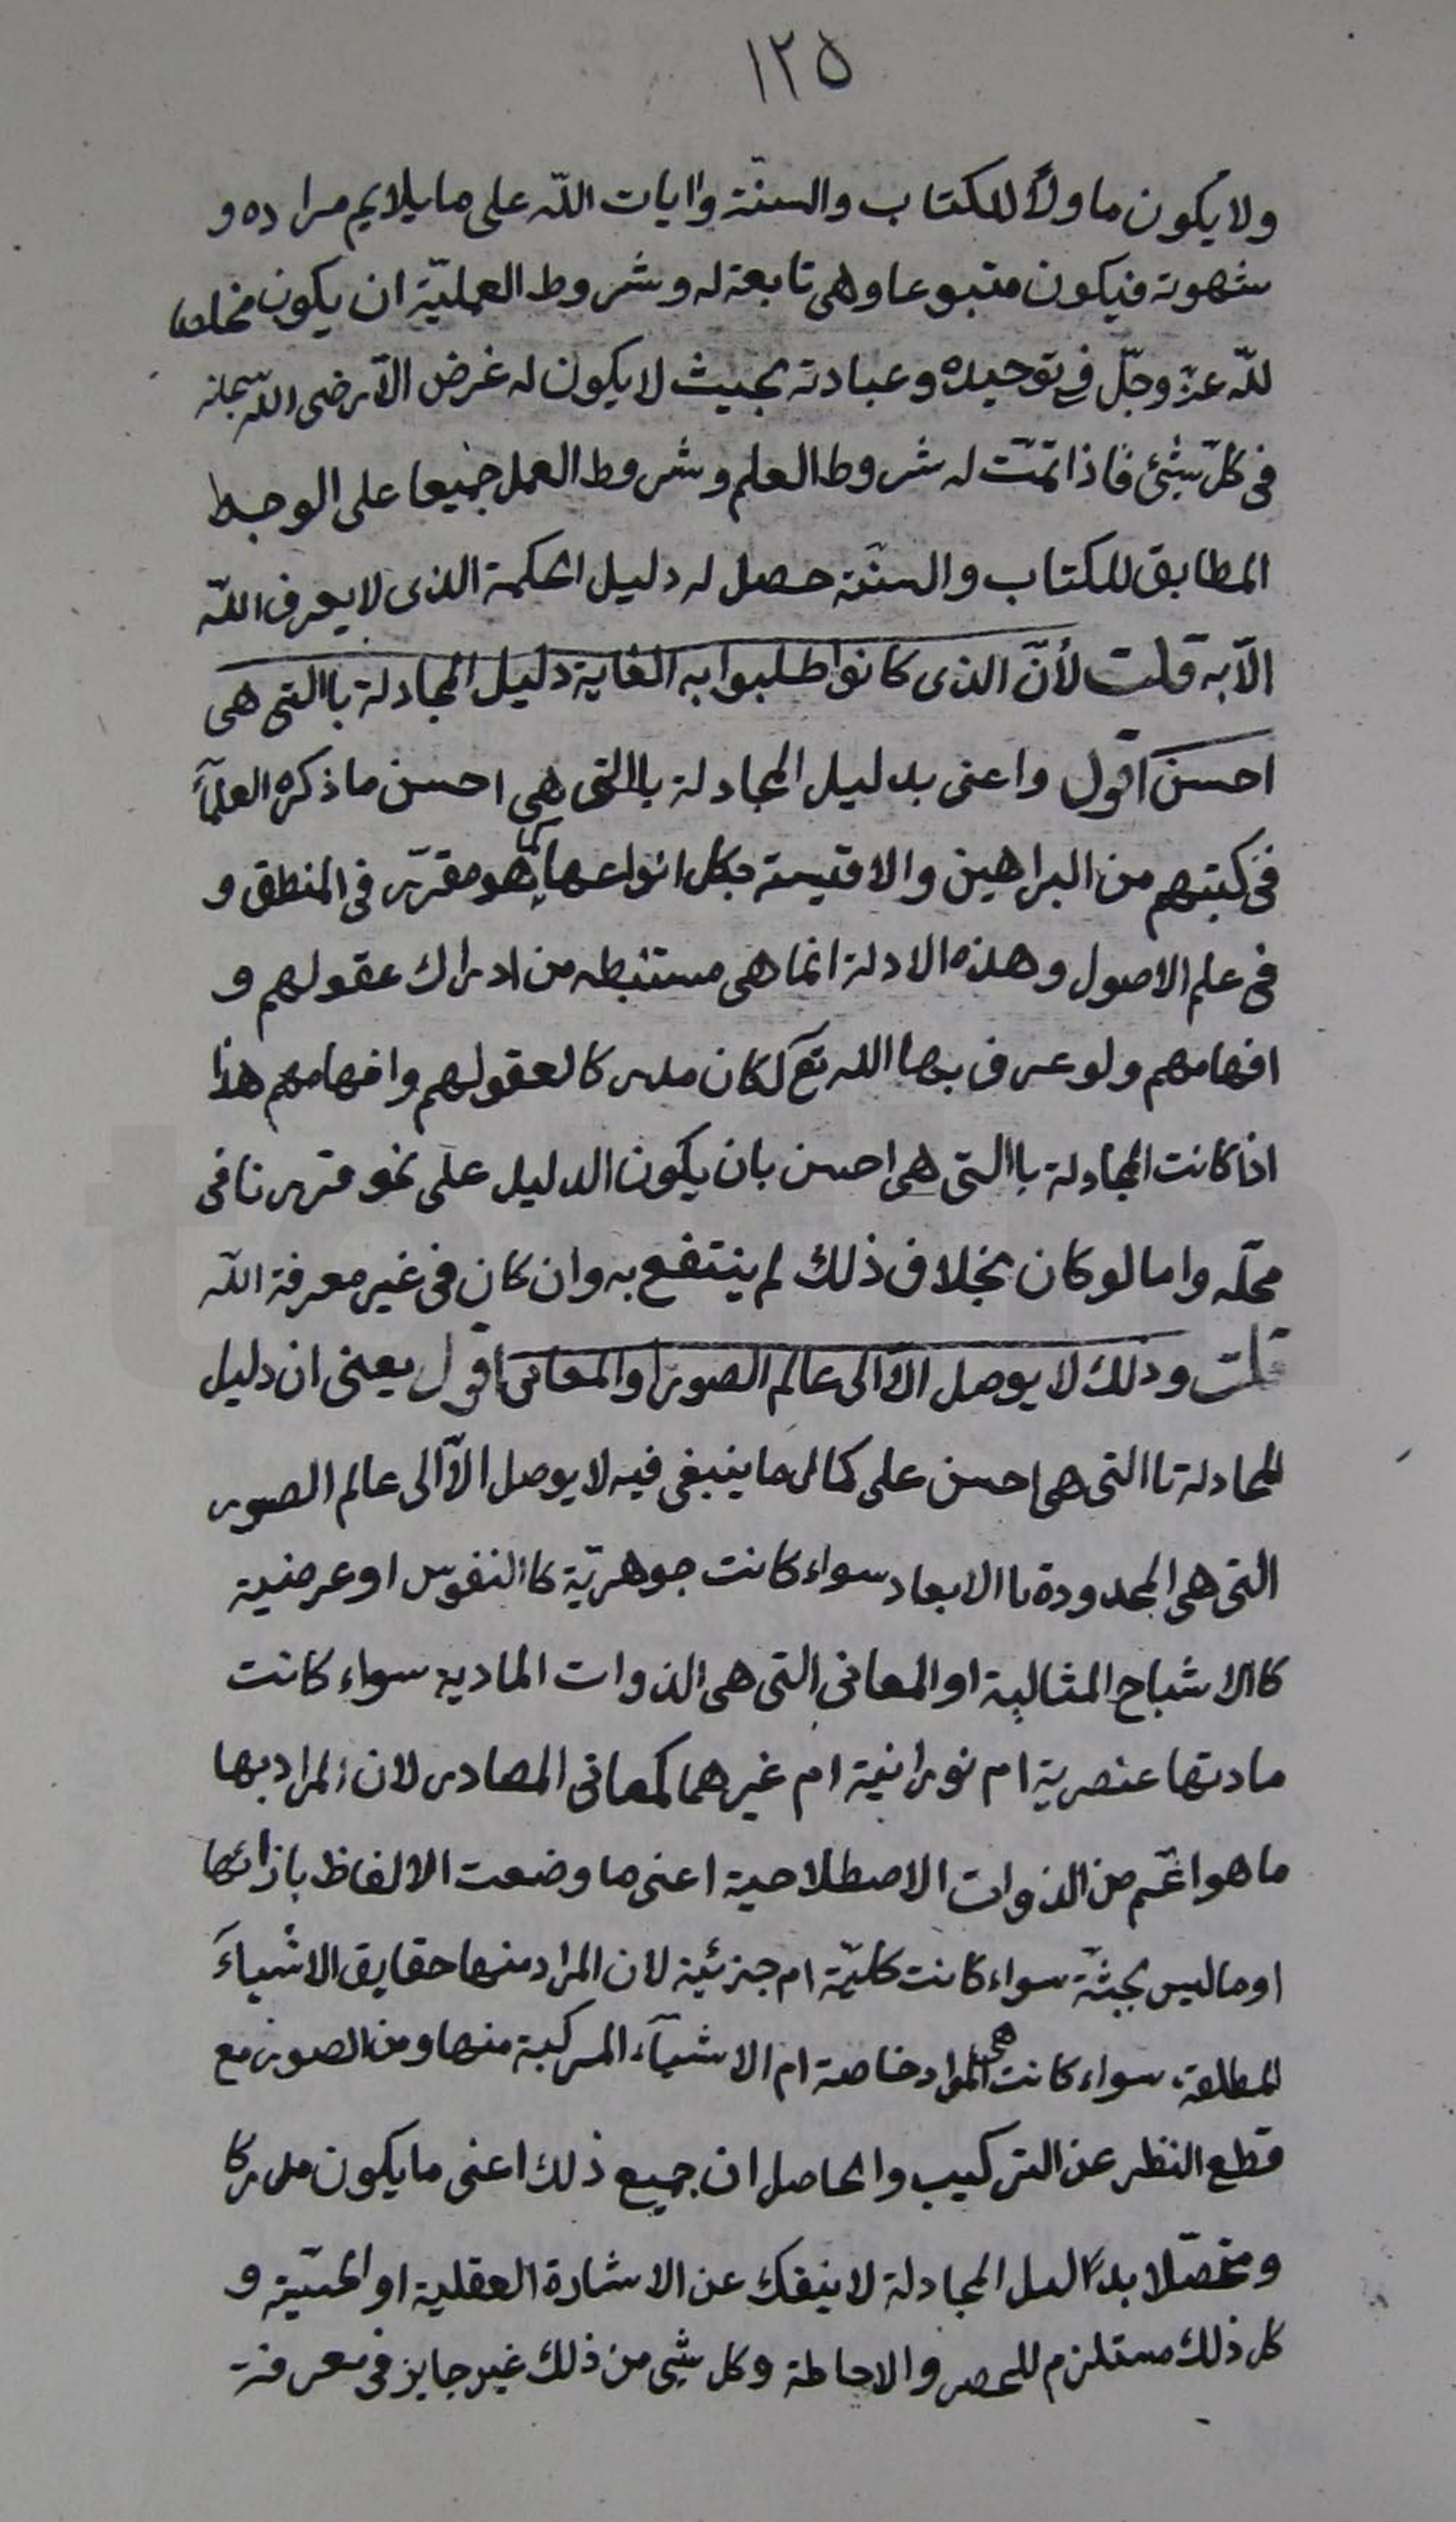 ١٢٥
ولا يكون ماولاً للكتاب والسنّة وايات اللّه على ما يلايم مراده و
شهوته فيكون متبوعا وهى تابعة له وشروط العمليّة ان يكون مخلصا
للّه عزّ وجلّ فى توحيده وعبادته بحيث لا يكون له غرض الّا رضى اللّه سبحانه
فى كلّ شئ فاذا تمّت له شروط العلم وشروط العمل جميعا على الوجه
المطابق للكتاب والسنّة حصل له دليل الحكمة الذى لا يعرف اللّه
الّا به قلت لأنّ الذى كانوا طلبوا به الغاية دليل المجادلة باالتى هى
احسن اقول واعنى بدليل المجادلة باالتى هى احسن ما ذكره العلمآء
فى كتبهم من البراهين والاقيسة بكل انواعها كما هو مقرّر فى المنطق و
فى علم الاصول وهذه الادلة انما هى مستنبطه من ادراك عقولهم و
افهامهم ولو عرف بها اللّه تع لكان مدركا لعقولهم وافهامهم هذا
اذا كانت المجادلة باالتى هى احسن بان يكون الدليل على نحو قررنا فى
محلّه واما لو كان بخلاف ذلك لم ينتفع به وان كان فى غير معرفة اللّه
قلت وذلك لا يوصل الّا الى عالم الصور او المعانى اقول يعنى ان دليل
المجادلة باالتى هى احسن على كمال ما ينبغى فيه لا يوصل الّا الى عالم الصور
التى هى المحدودة باالابعاد سواء كانت جوهريّة كاالنفوس او عرضية
كاالاشباح المثالية او المعانى التى هى الذوات المادية سواء كانت
مادتها عنصرية ام نورانية ام غيرهما كمعانى المصادر لان المراد بها
ما هو اعّم من الذوات الاصطلاحية اعنى ما وضعت الالفاظ بازائها
او ما ليس بجثّة سواء كانت كليّة ام جزئية لان المراد منها حقايق الاشياء
المطلقة سواء كانت هى المواد خاصة ام الاشيآء المركبة منها ومن الصور مع
قطع النظر عن التركيب والحاصل ان جميع ذلك اعنى ما يكون مدركا
ومتحصّلا بدليل المجادلة لا ينفك عن الاشارة العقلية او الحسّية و
كل ذلك مستلزم للحصر والاحاطة وكل شى من ذلك غير جايز فى معرفة